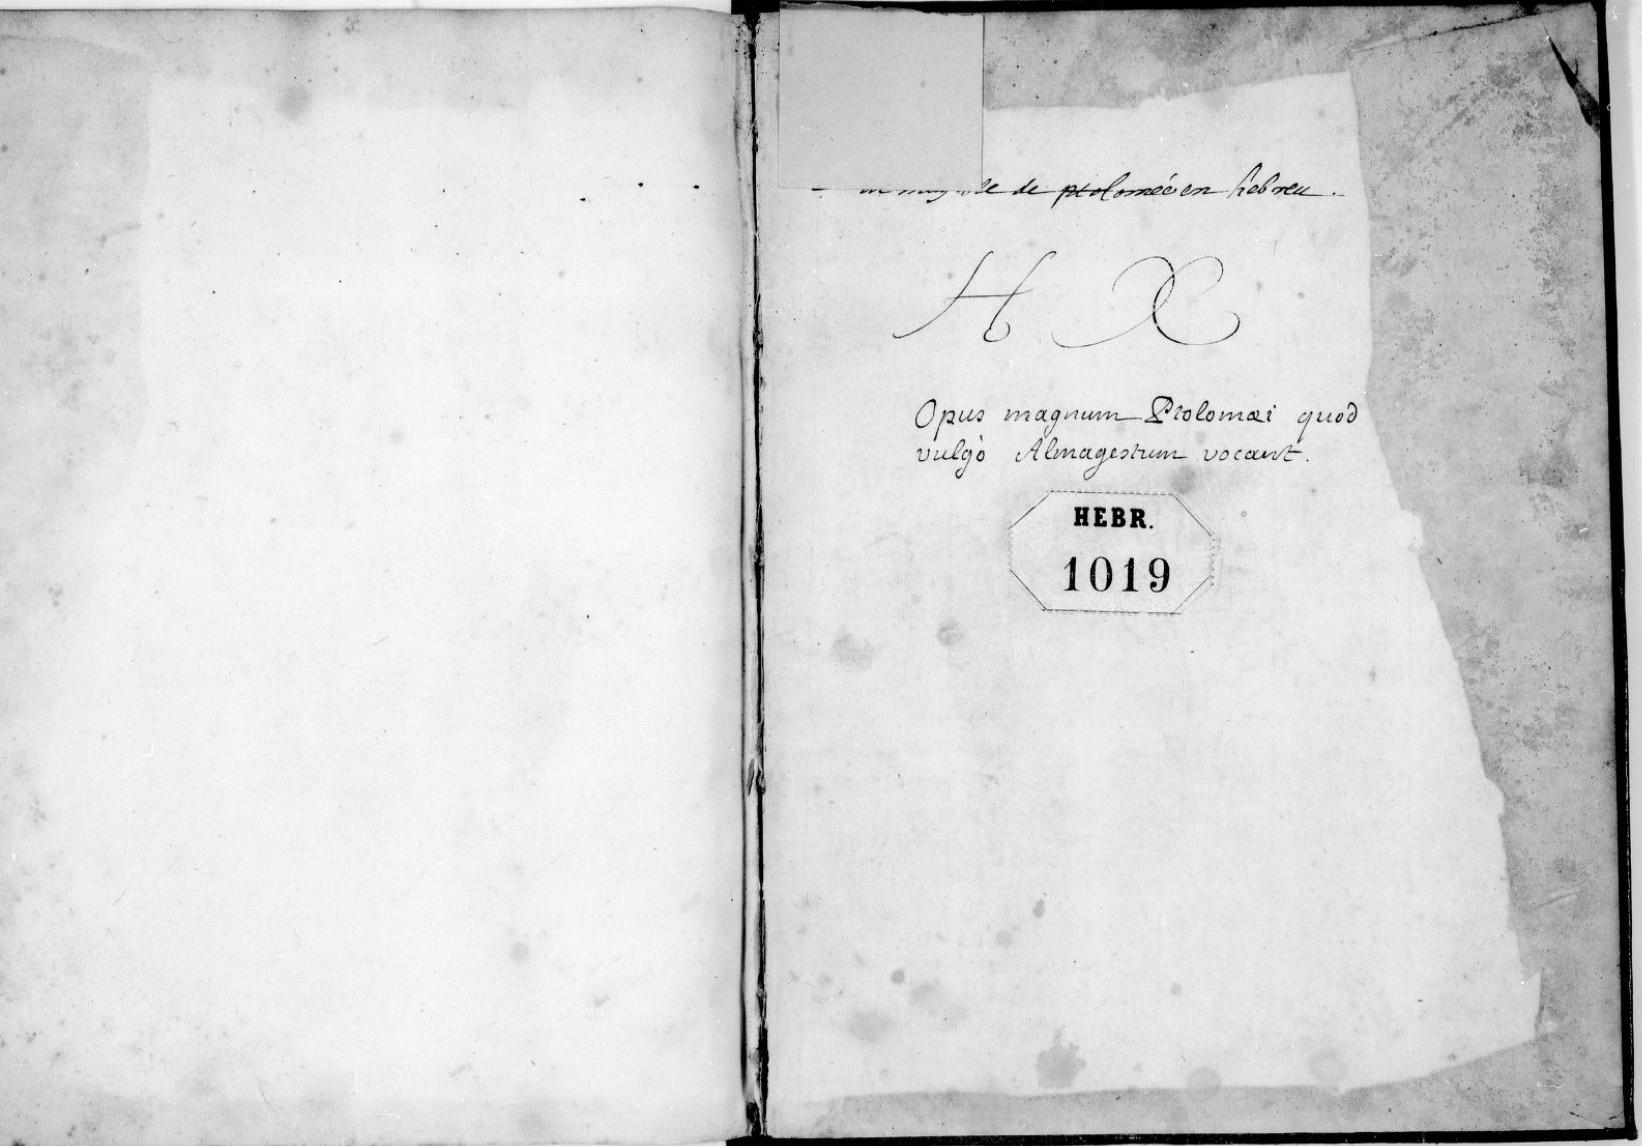 de ptolomée en hebreu.
H X
Opus magnum Ptolomæi quod
vulgò Almagestum vocant.
HEBR.
1019